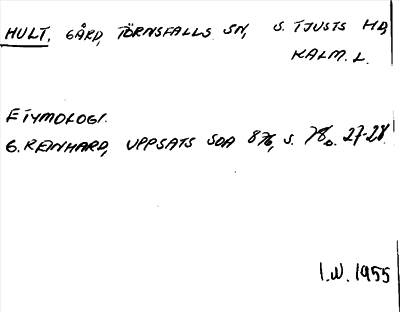 HULT, GÅRD, TÖRNSFALLS SN, S. TJUSTS HD,
KALM. L.
ETYMOLOGI.
G. REINHARD, UPPSATS SOA 876, S. 78, 27-28.
I.W. 1955